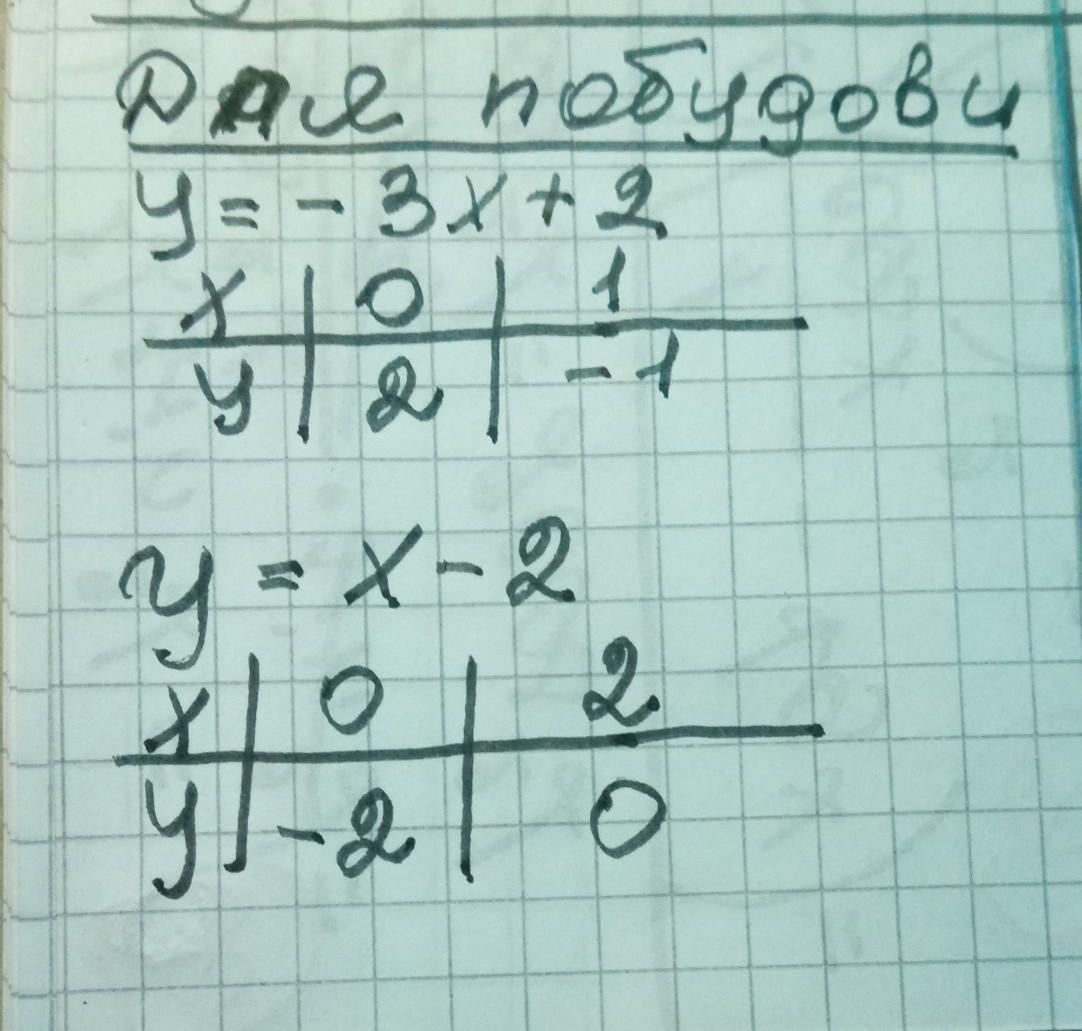 Для побудови
y = - 3x + 2
x | 0 | 1
y | 2 | - 1
y = x - 2
x | 0 | 2
y | - 2 | 0